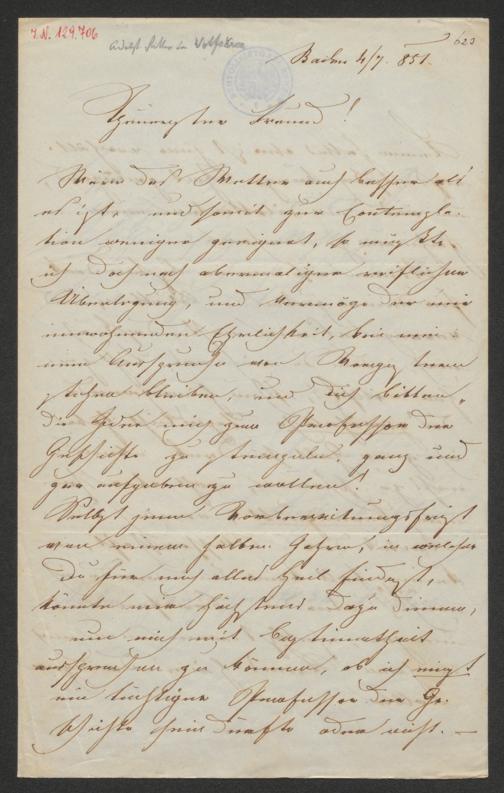 I.N. 129.706
623
Baden 4/7. 851.
Theuerster Freund!
Wenn das Wetter auch besser als
es ist, und somit zur Contempla-
tion weniger geeignet, so müßte
ich doch nach abermaliger reiflicher
Überlegung, und vermöge der mir
innewohnenden Ehrlichkeit, bei mei-
nem Ausspruche von
stehen bleiben, und Dich bitten,
die Idee mich zum Professor der
Geschichte zu stempeln, ganz und
gar aufgeben zu wollen!
Selbst jene Vorbereitungsfrist
von einem halben Jahre, in welcher
Du für mich alles Heil findest,
könnte nur höchstens dazu dienen,
um mich mit Bestimmtheit
aussprechen zu können, ob ich
ein tüchtiger Professor der Ge-
schichte sein dürfte oder nicht. —